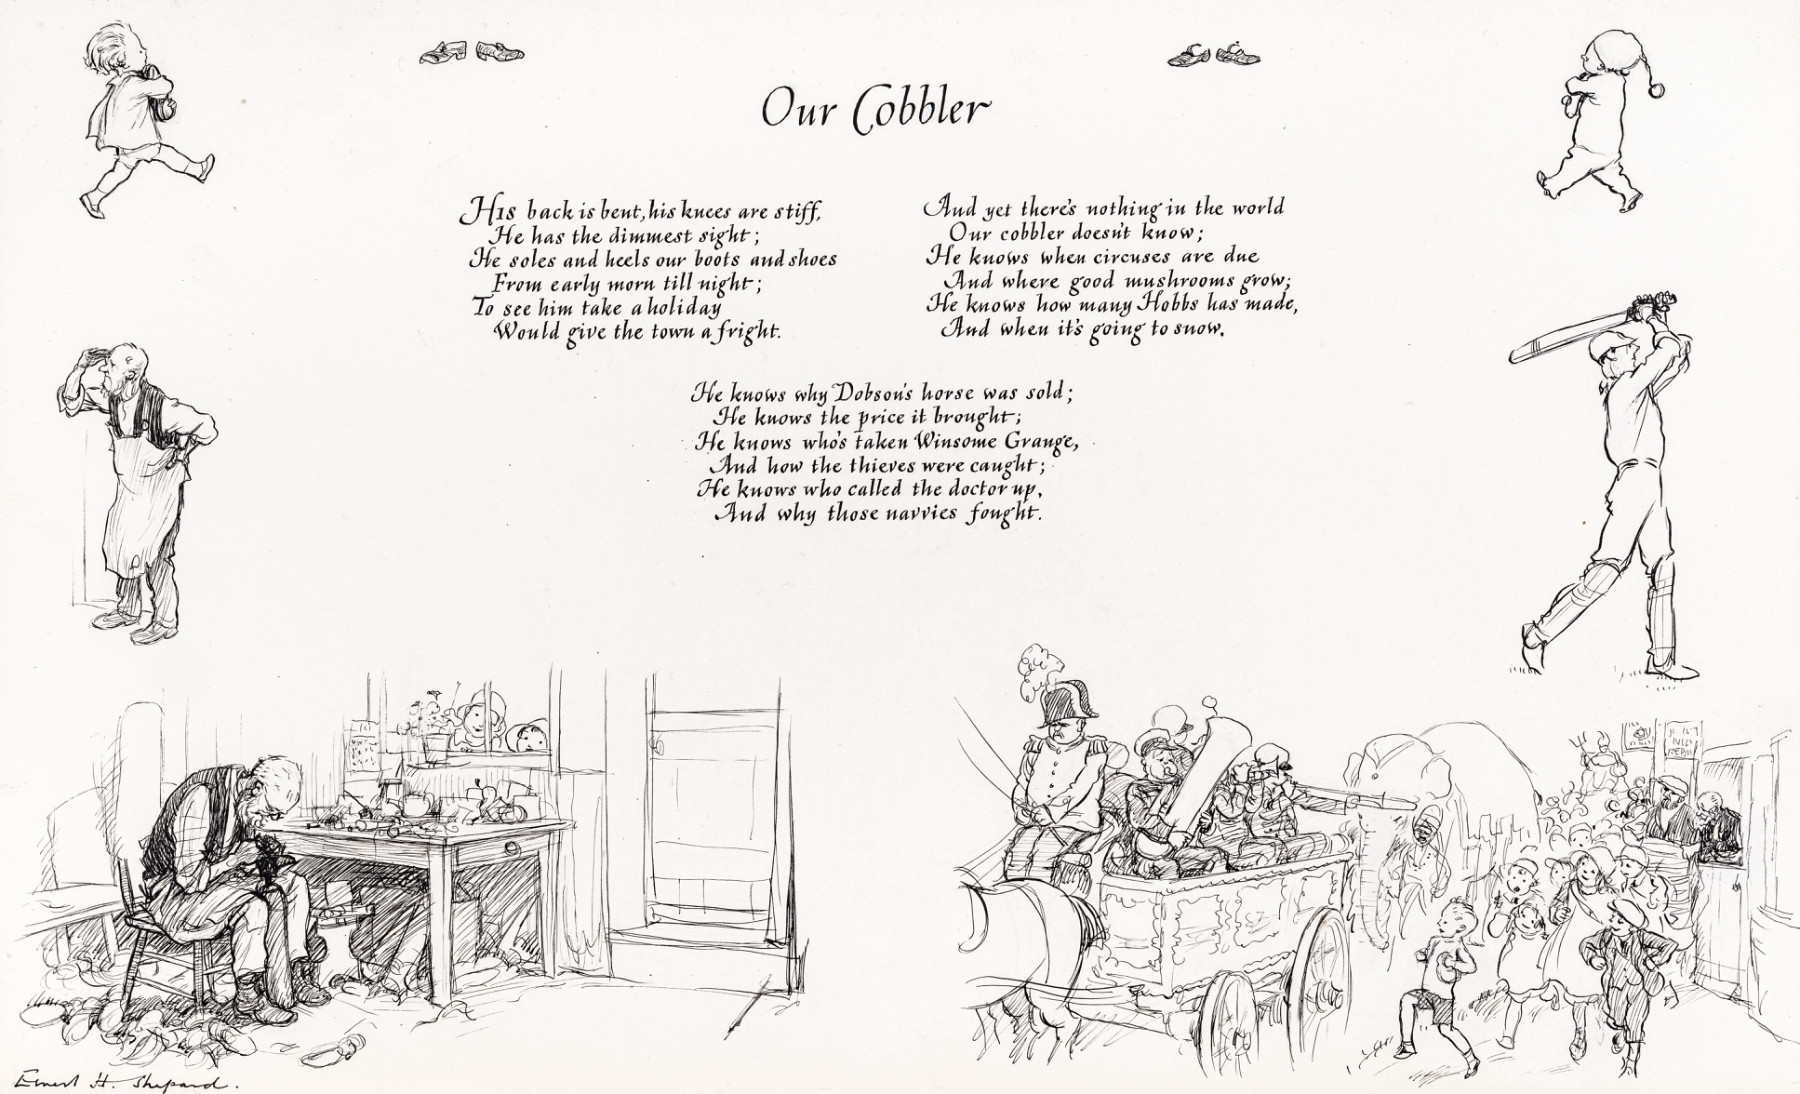 Our Cobbler
His back is bent, his knees are stiff,
He has the dimmest sight;
He soles and heels our boots and shoes
From early morn till night;
To see him take a holiday
Would give the town a fright.
And yet there's nothing in the world
Our cobbler doesn't know;
He knows when circuses are due
And where good mushrooms grow;
He knows how many Hobbs has made,
And when it's going to snow.
He knows why Dobson's horse was sold;
He knows the price it brought;
He knows who's taken Winsome Grange,
And how the thieves were caught;
He knows who called the doctor up,
And why those navvies fought.
Ernest H. Shepard.